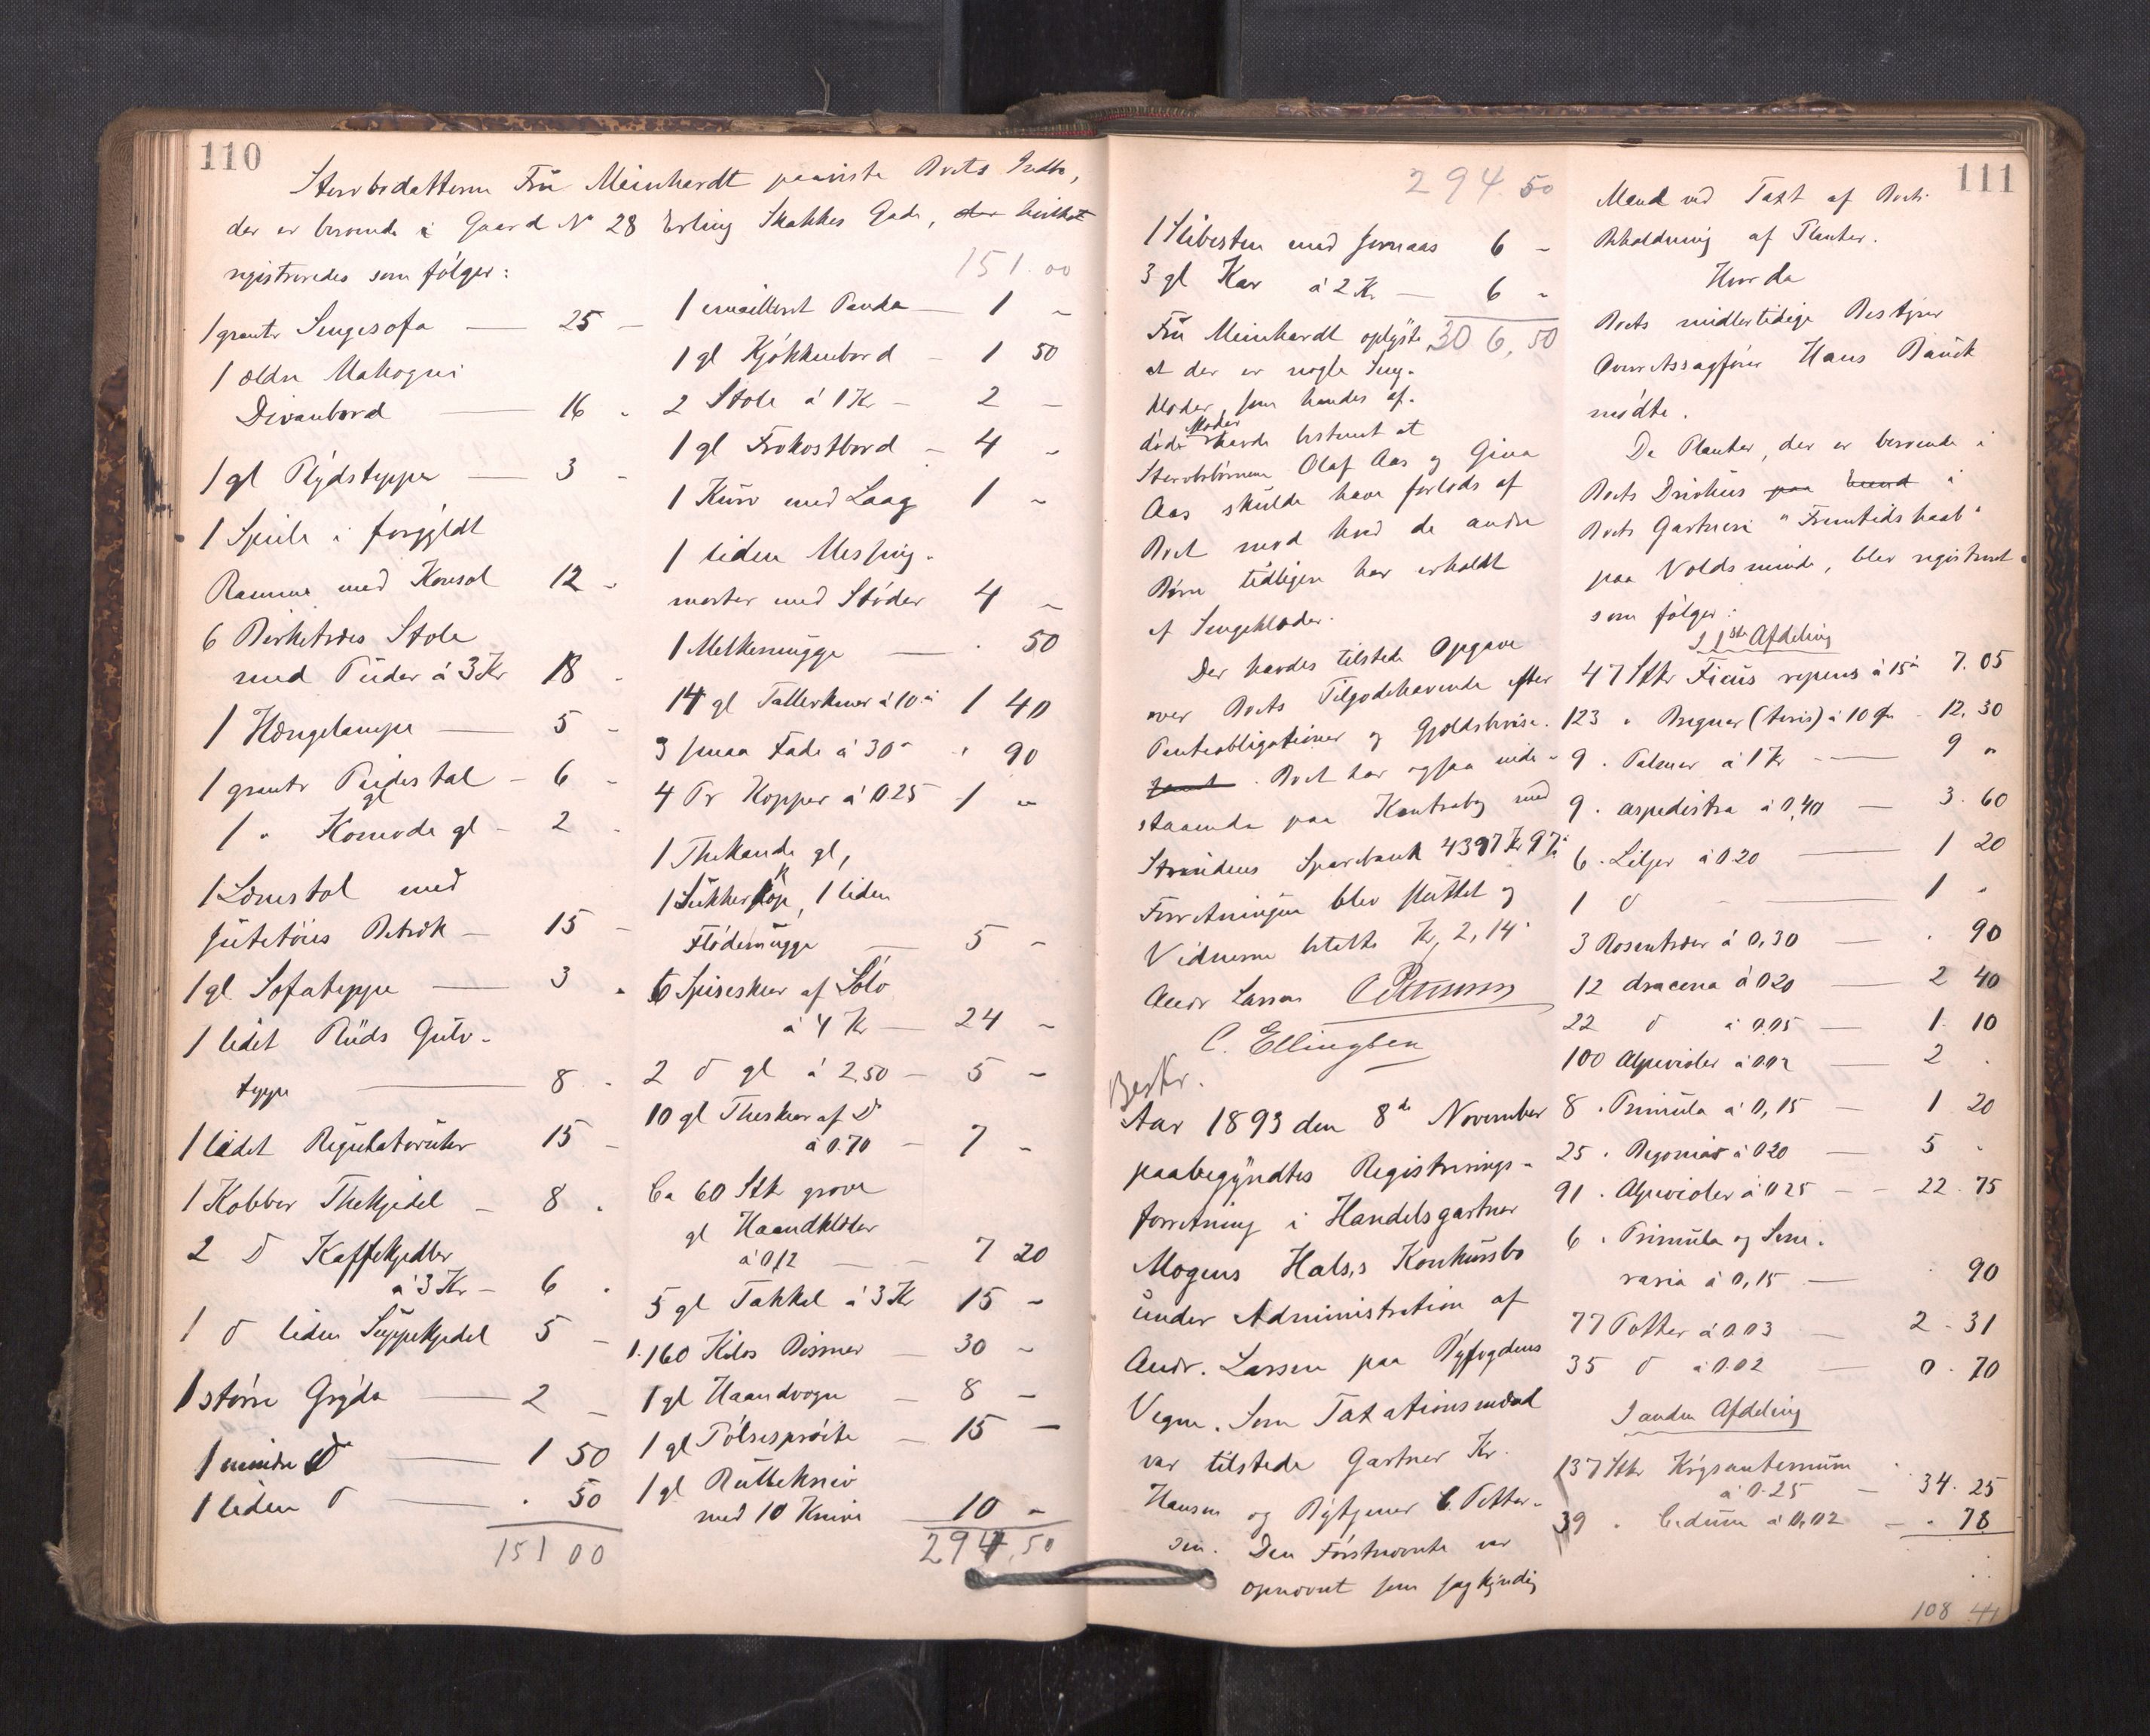 110
Stervbodatteren Fru Meinhardt paaviste Boets Indbo,
der er beroende i Gaard No 28 Erling Skakkes Gade, der hvilket
registreredes som følger:
1 grøntr Sengesofa — 25 –
1 ældre Mahogni
Divanbord — 16 -
1 gl Plydsteppe — 3 -
1 Speile i forgyldt
Ramme med Konsol 12 -
6 Birketræes Stole
med Puder á 3 Kr 18 -
1 Hængelampe — 5 -
1 grøntr Peidestal – 6 -
gl
1 " Komode gl – 2 -
1 Lænestol med
Jutetøies Betræk – 15 –
1 gl Sofateppe — 3 -
1 lidet Pluds Gulv-
teppe — 8 -
1 lidet Regulatoruhr 15 –
1 Kobber Thekjedel – 8 -
2 D Kaffekjedler
á 3 Kr – 6 -
1 d liden Suppekjedel 5 –
1 større Gryde — 2 –
1 mindre D — 1 50
1 liden d — . 50
151 00
151.00
1 emailleret Pande — 1 –
1 gl Kjøkkenbord – 1 50
2 Stole á 1 Kr – 2 –
1 gl Frokostbord – 4 –
1 Kurv med Laag 1 –
1 liden Messing-
morter med Støder 4 –
1 Melkemugge — . 50
14 gl Tallerkener á 10 ø 1 40
3 smaa Fade á 30 " 90
4 Pr Kopper á 0.25 1 –
1 Thekande gl,
1 Sukkerkop, 1 liden
Flødemugge — 5 –
6 Spiseskeer af Sølv
á 4 Kr — 24 –
2 d gl á 2.50 – 5 –
10 gl Theskeer af D
á 0.70 – 7 –
Ca 60 Stk grove
gl Haandklæder
á 0,12 — 7 20
5 gl Takkel á 3 Kr 15 –
1.160 Kilos Bismer — 30 –
1 gl Haandvogn – 8 –
1 gl Pølsesprøite – 15 –
1 gl Rullekniv
med 10 Knive 10 –
294,50
111
294.50
1 Slibesten med Jernaas 6 –
3 gl Kar á 2 Kr — 6 -
306,50
Fru Meinhardt oplyste
at der er nogle Seng-
klæder, som hendes af-
døde Moder havde bestemt at
Stervbobørnene Olaf Aas og Gina
Aas skulde have forlods af
Boet mod hvad de andre
Børn tidligere har erholdt
af Sengeklæder.
Der havdes tilstede Opgave
over Boets Tilgodehavende efter
Panteobligationer og Gjeldsbevise.
Boet har ogsaa inde-
staaende paa Kontrabog med
Strindens Sparebank 4397 Kr 97 ø
Forretningen blev sluttet og
Vidnerne betalte Kr, 2,14.
Andr Larsen C Petersen
C. Ellingsen
Beskr.
Aar 1893 den 8de November
paabegyndtes Registrerings-
forretning i Handelsgartner
Mogens Hals,s Konkursbo
under Administration af
Andr. Larsen paa Byfogdens
Vegne. Som Taxationsmænd
var tilstede Gartner Kr.
Hansen og Bytjener C. Petter-
sen. Den Førstnævnte var
opnævnt som sagkyndig
Mand ved Taxt af Boets
Beholdning af Planter.
Hvorda
Boets midlertidige Bestyrer
Overretssagfører Hans Bauck
mødte.
De Planter, der er beroende i
Boets Drivhus paa i
Boets Gartneri "Fremtids haab"
paa Voldsminde, blev registreret
som følger:
I 1ste Afdeling
47 Stkr Ficus repens á 15 ø 7.05
123 " Bregner (teris) á 10 Øre 12.30
9 . Palmer á 1 Kr — 9 "
9 . aspedistra á 0,40 — 3.60
6 . Liljer á 0 20 — 1 20
1 d — 1 -
3 Rosentræer á 0,30 — . 90
12 dracena á 0 20 — 2 40
22 d á 0.05 — 1. 10
100 Alpevioler á 0.02 — 2 .
8 . Primula á 0,15 — 1 20
25 . Begonias á 0 20 — 5 .
91 . Alpevioler á 0 25 – – 22.75
6 . Primula og Sine-
raria á 0,15 — . 90
77 Potter á 0.03 — 2.31
35 d á 0.02 — 0.70
I anden Afdeling
137 Stkr Krysantemum
á 0.25 — 34.25
39 " Cedum á 0,02 – " 78
108 41